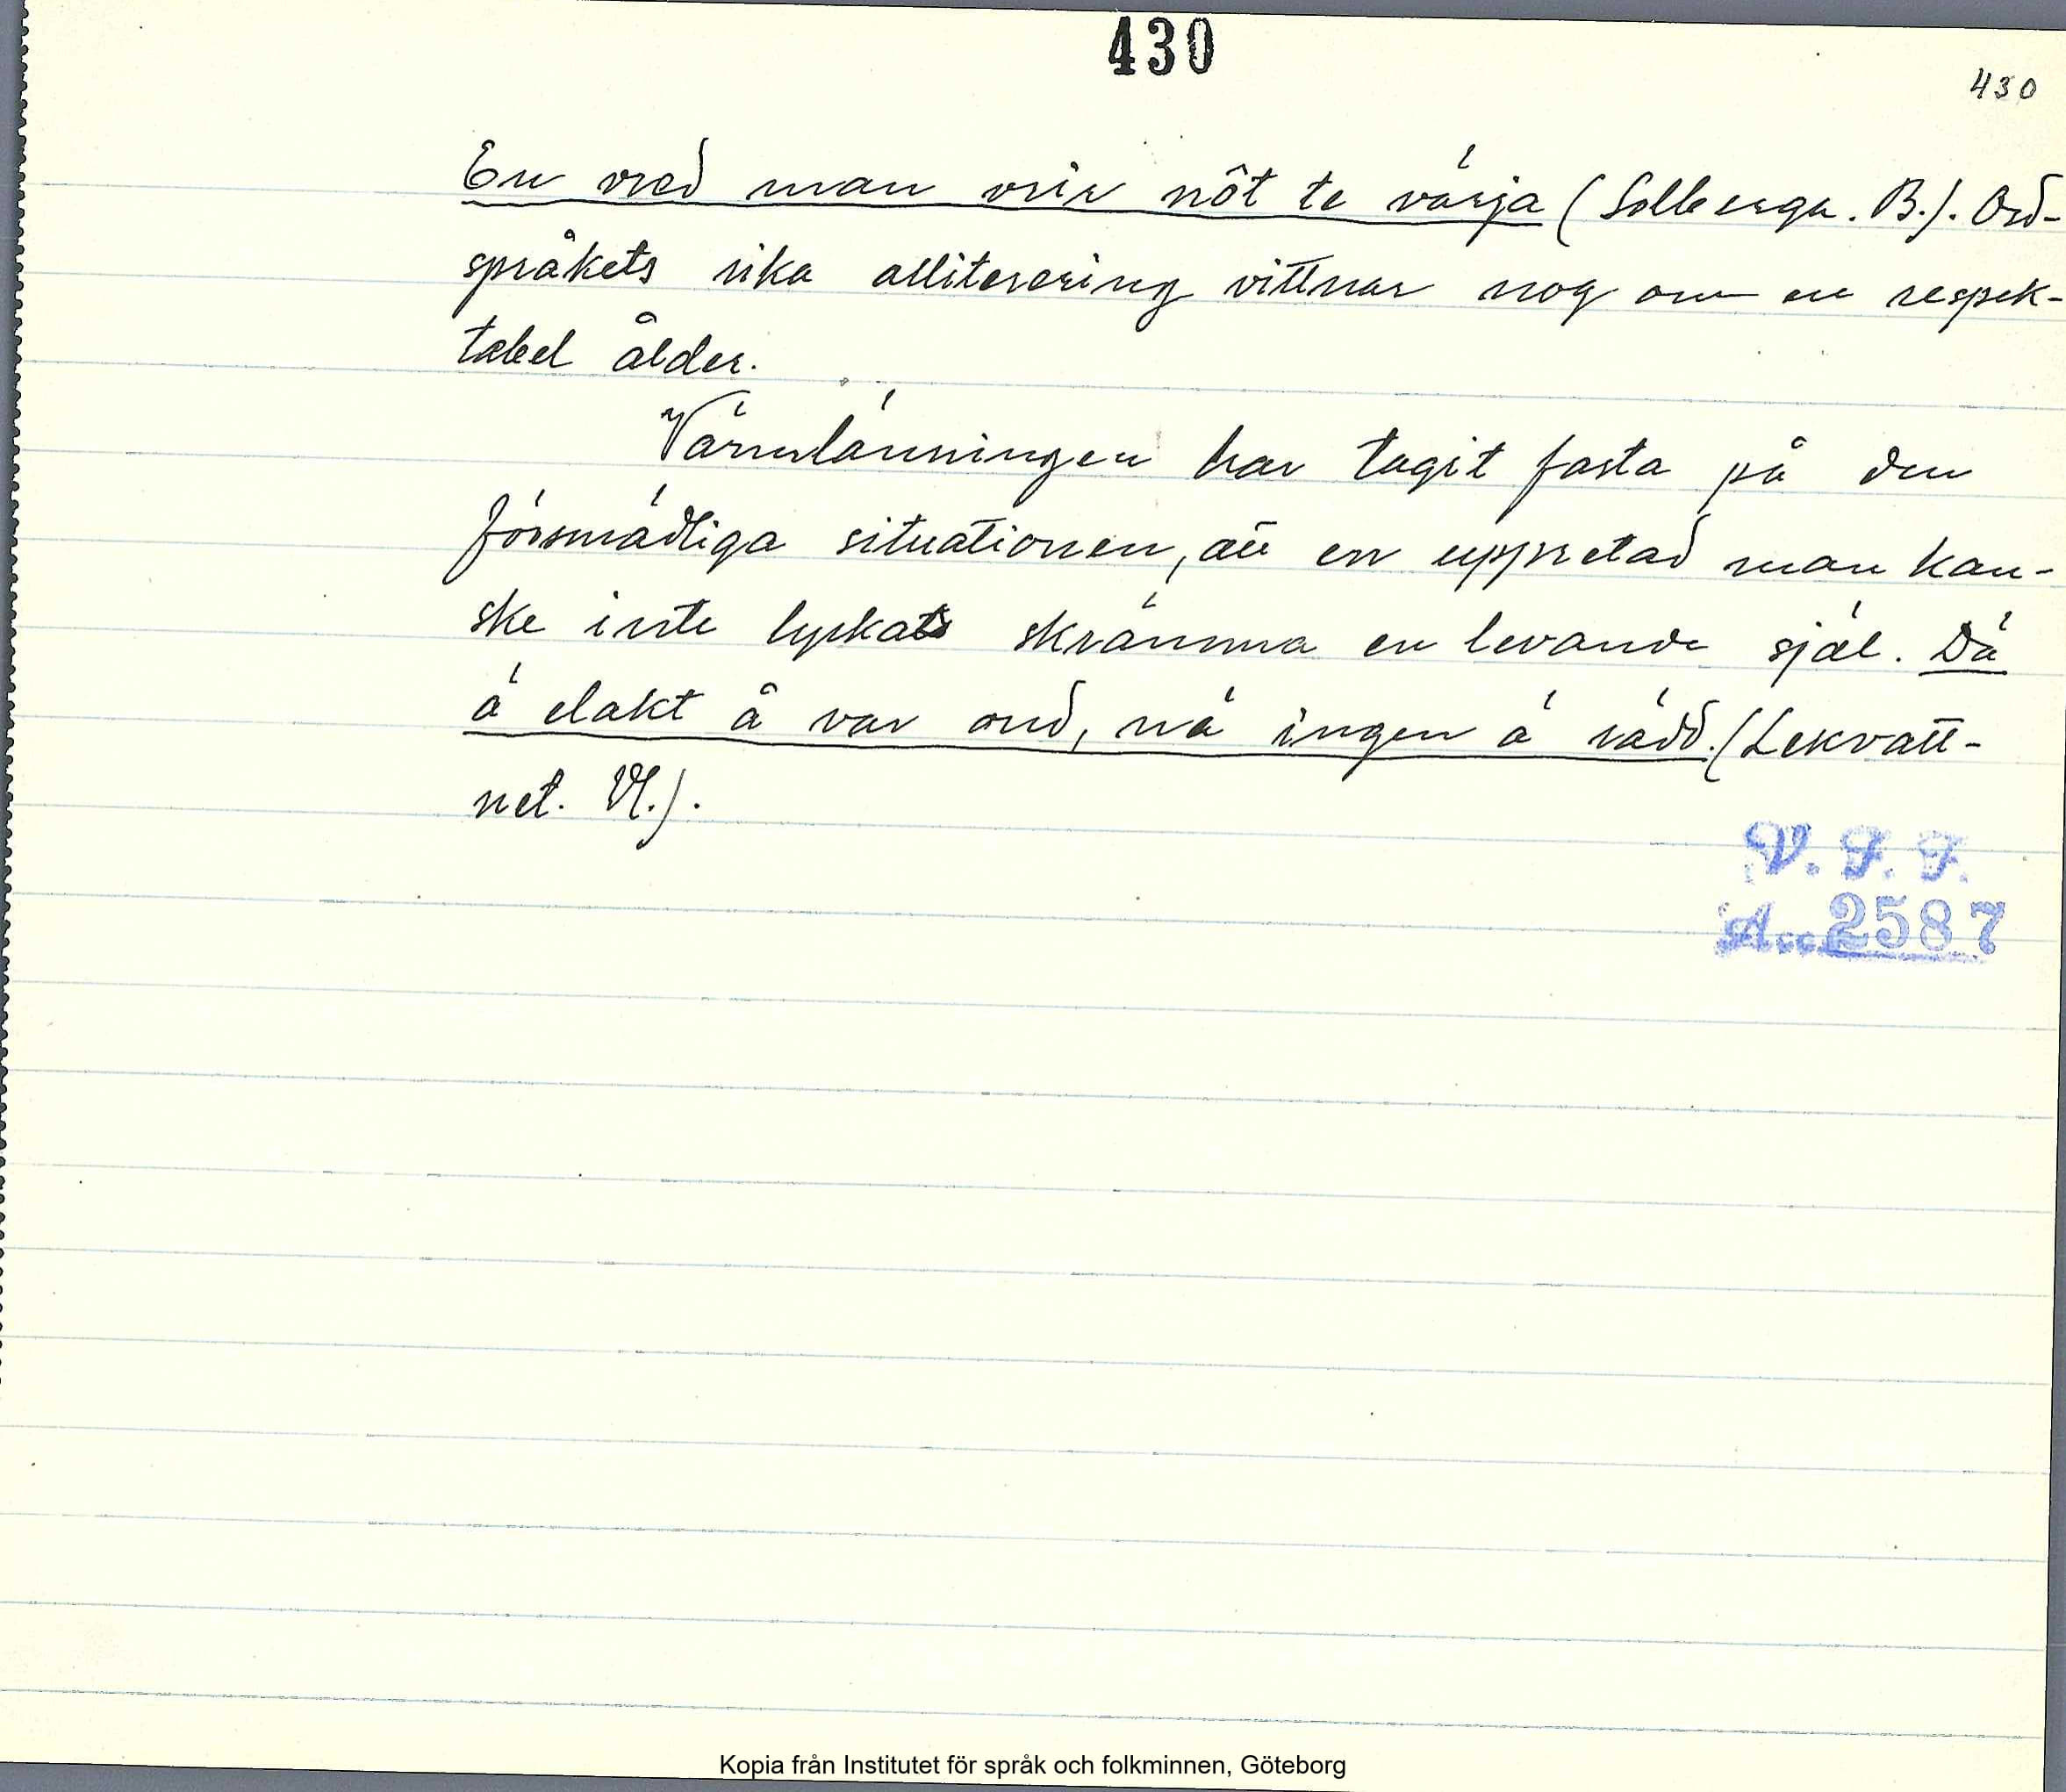 430
430
En vred man vrir nôt te värja (Solberga. B.). Ord-
språkets rika alliterering vittnar nog om en respek-
tabel ålder.
Värmlänningen har tagit fasta på den
försmädliga situationen, att en uppretad man kan-
ske inte lyckats skrämma en levande själ. Dä
ä elakt å var ond, nä ingen ä rädd. (Lekvatt-
net. Vl.).
V. F. F.
Acc. 2587
Kopia från Institutet för språk och folkminnen, Göteborg